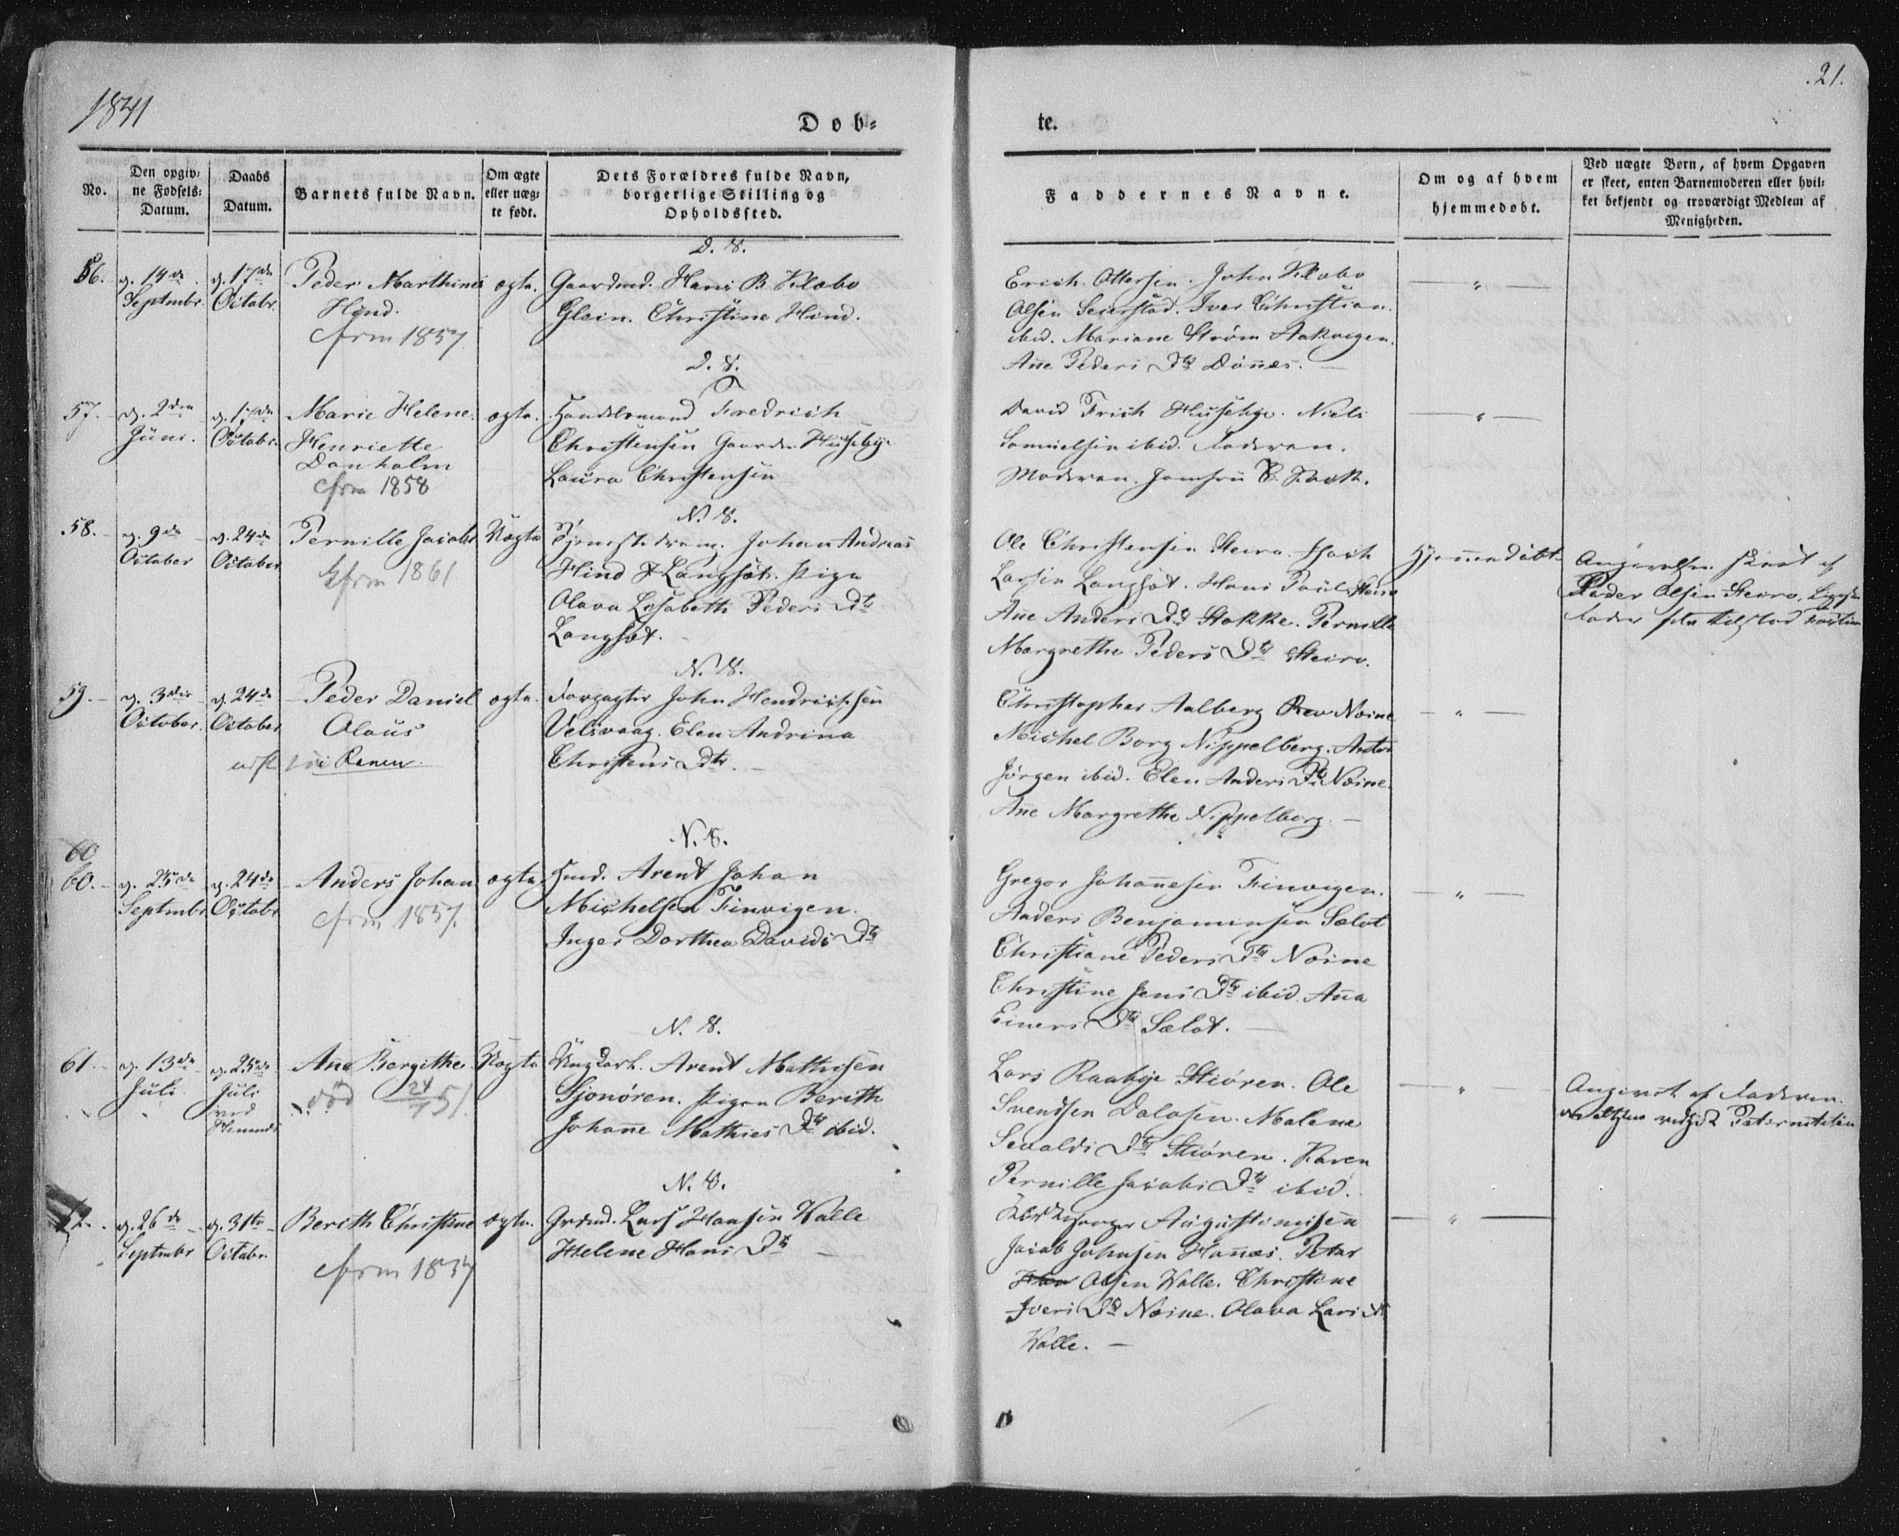 1841
21.
Døb-
te.
No.
Den opgiv-
ne Fødsels-
Datum.
Daabs
Datum.
Barnets fulde Navn.
Om ægte
eller uæg-
te født.
Dets Forældres fulde Navn,
borgerlige Stilling og
Opholdssted.
Faddernes Navne.
Om og af hvem
hjemmedøbt.
Ved uægte Børn, af hvem Opgaven
er skeet, enten Barnemoderen eller hvil-
ket bekjendt og troværdigt Medlem af
Menigheden.
56.
d. 14de
Septmbr
d. 17de
Octobr.
Peder Marthines
Hind.
cfrm 1857.
ægte.
D. S.
Gaardmd. Hans B. Klæbo
Glein. Christine Hind.
Erich Ottersen. John Klæbo
Olsen Seierstad. Iver Christian
ibid. Mariane Strøm Aakvigen.
Ane Peders Dtr Dønnes.
57.
d. 2den
Juni.
d. 17de
Octobr.
Marie Helene
Henriette
Danholm
cfrm 1858
ægte.
D. S.
Handelsmand Fredrich
Christensen Gaarden Husebye
Laura Christensen
David Frich Husebye. Niels
Samuelsen ibid. Faderen.
Moderen. Jomfru
58.
d. 9de
October
d. 24de
October
Pernille Jacobs
cfrm 1861
Uægte
N. S.
Tjenestedreng Johan Andreas
Hind Langset. Pige
Olava Lisabeth Peders Dtr
Langset.
Ole Christensen Steiro.
Larsen Langset. Hans Paul Steiro
Ane Anders Dtr Stokke. Pernille
Margrethe Peders Dtr Steiro.
Hjemmedøbt
Angivelsen skeet af
Peder Olsen Steiro.
59.
d. 3die
October
d. 24de
October
Peder Daniel
Olaus
udfl. til Ranen.
ægte.
N. S.
Forpagter John Hendrichsen
Velsvaag. Elen Andrina
Christens Dtr.
Christopher Aalberg Noine
Michel Borg Nippelberg. Anton
Jørgen ibid. Elen Anders Dtr Noine.
Ane Margrethe Nippelberg.
60
60.
d. 25de
Septmbr
d. 24de
Octobr
Anders Johan
cfrm 1857.
ægte.
N. S.
Hmd. Arent Johan
Michelsen Finvigen.
Inger Dorthea Davids Dtr
Gregor Johannesen Finvigen.
Anders Benjaminsen Sælot
Christiane Peders Dtr Noine
Christine Jens Dtr ibid. Ana
Einers Dtr Sælot.
61.
d. 13de
Juli
d. 25de
Juli
ved
Ane Bergithe
død 24 51.
Uægte
N. S.
Ungkarl. Arent Mathisen
Sjonøren. Pigen Berith
Johanne Mathies Dtr ibid.
Lars Raabye Stiøren. Ole
Svendsen Dalosen. Malene
Sevalds Dtr Stiøren. Karen
Pernille Jacobs Dtr ibid.
Angivet af Faderen.
62.
d. 26de
Septmbr
d. 31te
Octobr.
Berith Christine
cfrm 1857
ægte.
N. S.
Grdmd. Lars Hansen Walle
Helene Hans Dtr
Augustinusen
Jacob Johnsen Hannes. Peter
Olsen Walle. Christine
Ivers Dtr Noine. Olava Lars Dtr
Walle.